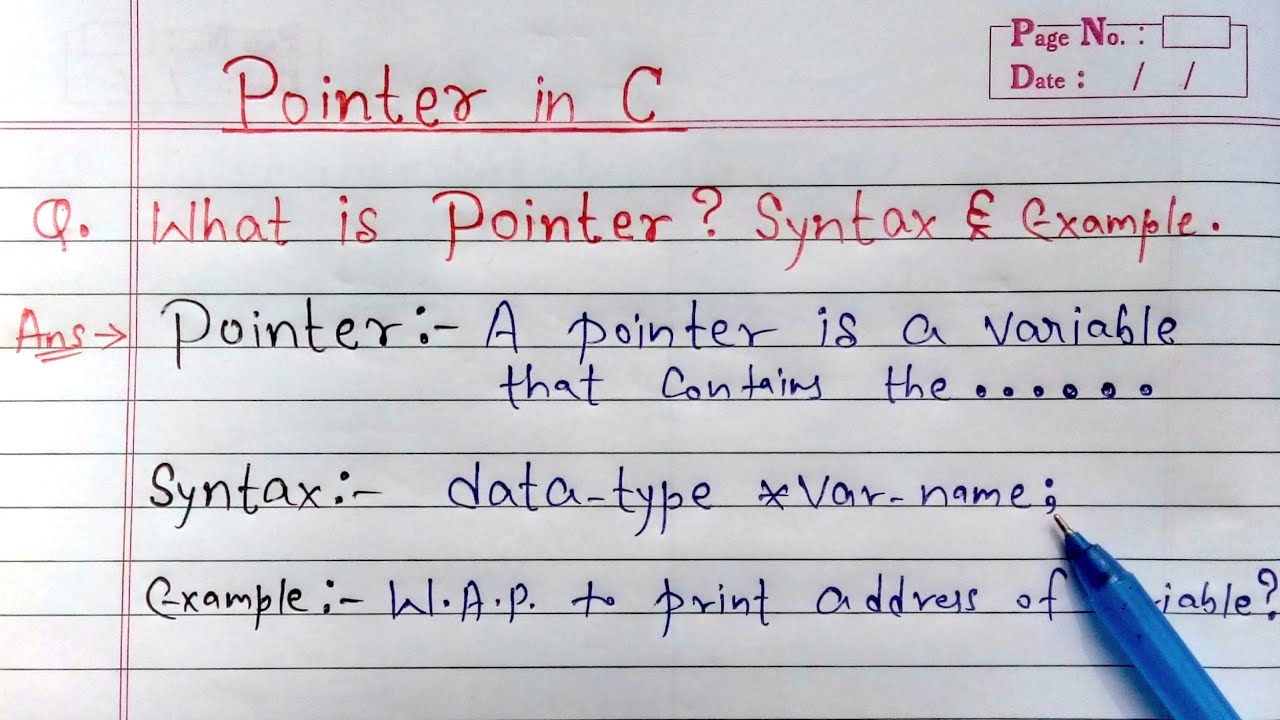 Page No. :
Date : / /
Pointer in C
Q. What is Pointer? Syntax & Example.
Ans → Pointer:- A pointer is a variable
that contains the ......
Syntax:- data-type *var-name;
Example:- W.A.P. to print address of iable?